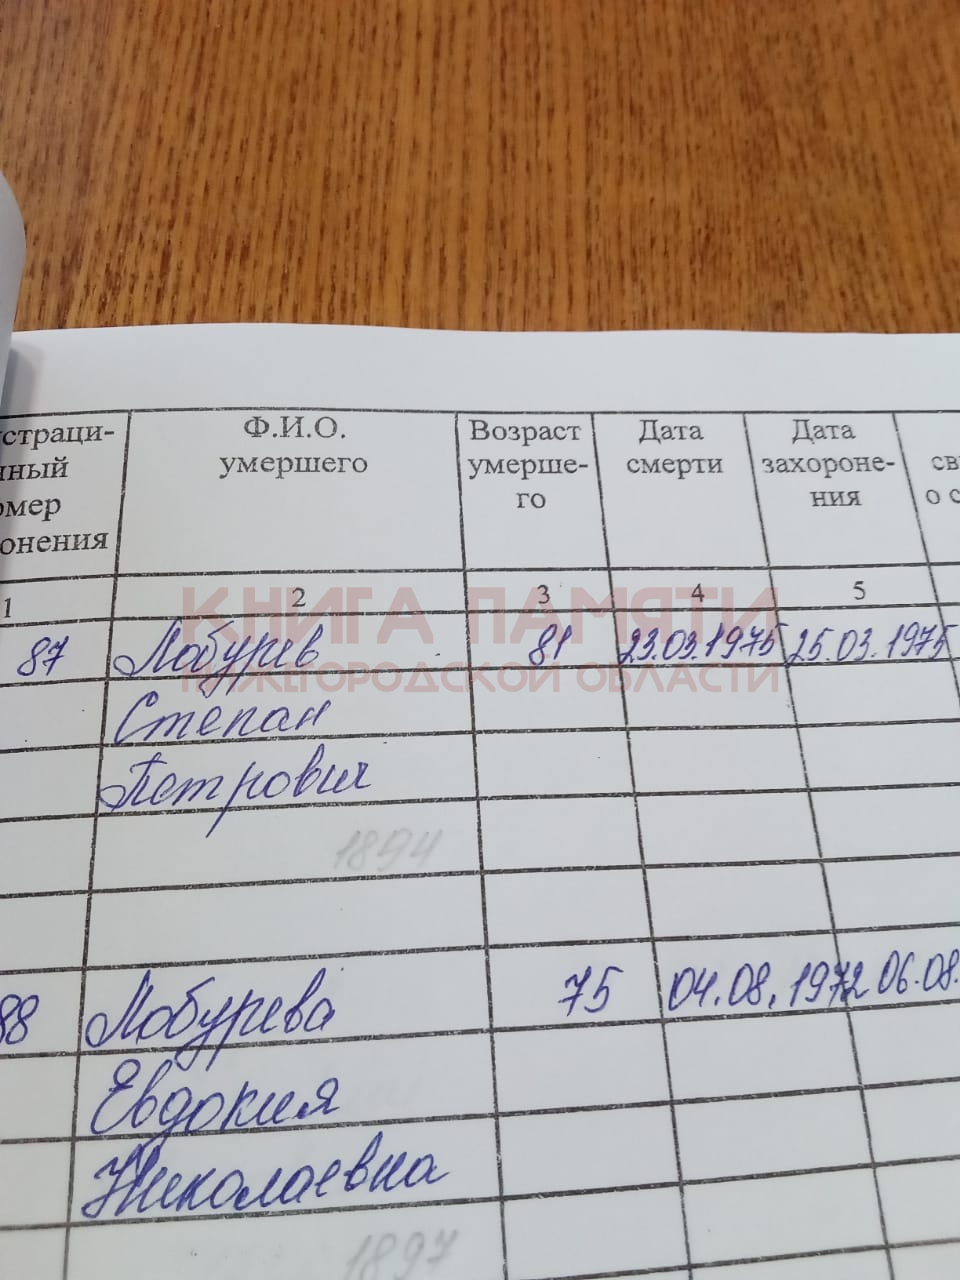 страци- Ф.И.О. Возраст Дата Дата
ный умершего умерше- смерти захороне- св
омер го ния о с
онения
1 2 3 4 5
КНИГА ПАМЯТИ
НИЖЕГОРОДСКОЙ ОБЛАСТИ
87 Лобурев 81 23.03.1975 25.03.1975
Степан
Петрович
1894
88 Лобурева 75 04.08.1972 06.08.
Евдокия
Николаевна
1897